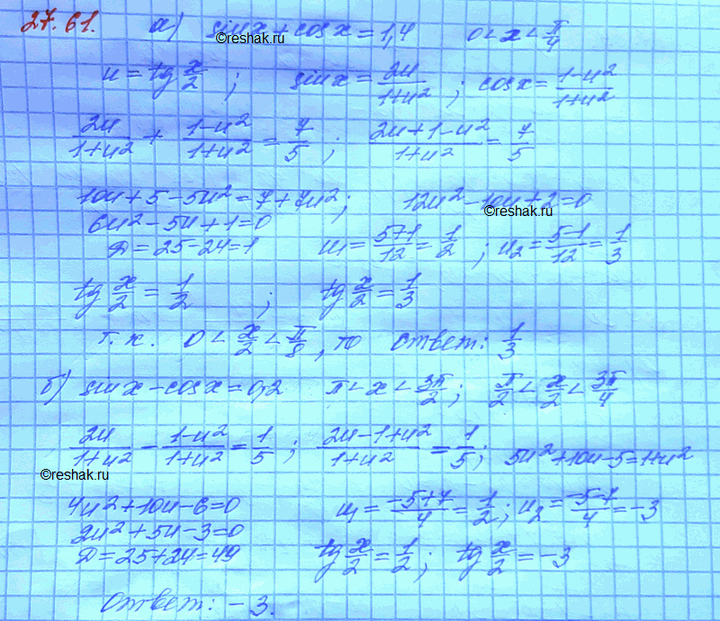 27.61. а) sinx + cosx = 1,4   0 < x < π/4
©reshak.ru
u = tg x/2 ; sinx = 2u/(1+u²) ; cosx = (1-u²)/(1+u²)
2u/(1+u²) + (1-u²)/(1+u²) = 7/5 ; (2u+1-u²)/(1+u²) = 7/5
10u+5-5u² = 7+7u² ; 12u²-10u+2=0
©reshak.ru
6u²-5u+1=0
Д=25-24=1   u₁ = (5+1)/12 = 1/2 ; u₂ = (5-1)/12 = 1/3
tg x/2 = 1/2 ; tg x/2 = 1/3
т.к. 0 < x/2 < π/8, то ответ: 1/3
б) sinx - cosx = 0,2   π < x < 3π/2 ; π/2 < x/2 < 3π/4
2u/(1+u²) - (1-u²)/(1+u²) = 1/5 ; (2u-1+u²)/(1+u²) = 1/5 ; 5u²+10u-5=1+u²
©reshak.ru
4u²+10u-6=0   u₁ = (-5+7)/4 = 1/2 ; u₂ = (-5-7)/4 = -3
2u²+5u-3=0
Д=25+24=49   tg x/2 = 1/2 ; tg x/2 = -3
Ответ: -3.